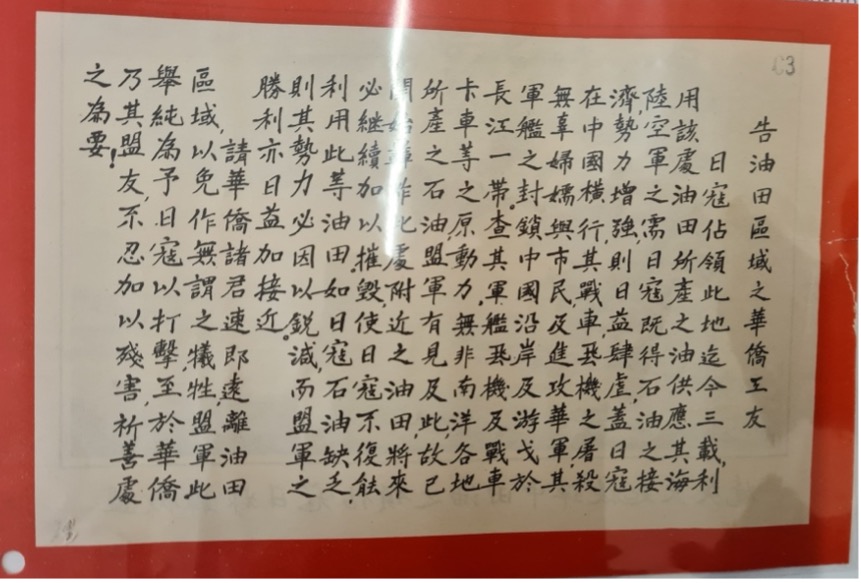 告油田區域之華僑工友
日寇佔領此地迄今三載,利
用該處油田所產之油供應其海
陸空軍之需,日寇既得石油之接
濟,勢力增強,則日益肆虐,蓋日寇
在中國橫行,其戰車,飛機之屠殺
無辜婦孺與市民,及進攻華軍,其
軍艦之封鎖中國沿岸及游戈於
長江一帶。查其軍艦飛機及戰車
卡車等之原動力,無非南洋各地
所產之石油,盟軍有見及此,故已
開始轟炸此處附近之油田,將來
必繼續加以摧毀,使日寇不復能
利用此等油田。如日寇石油缺乏,
則其勢力必因以銳減,而盟軍之
勝利亦日益加接近。
請華僑諸君速即遠離油田
區域,以免作無謂之犧牲,盟軍此
舉純為予日寇以打擊,至於華僑
乃其盟友,不忍加以殘害,祈善處
之為要!